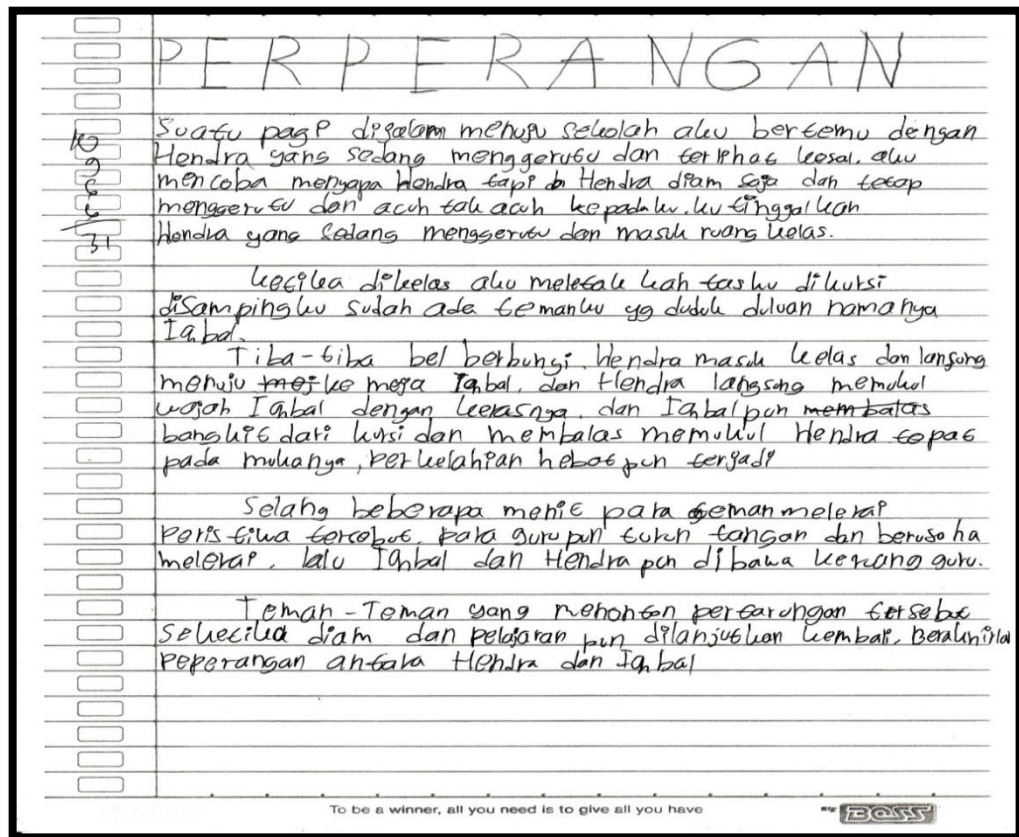 PERPERANGAN
Suatu pagi dijalam menuju sekolah aku bertemu dengan
Hendra yang sedang menggerutu dan terlihat kesal. aku
mencoba menyapa Hendra tapi Hendra diam saja dan tetap
menggerutu dan acuh tak acuh kepadaku. ku tinggalkan
Hendra yang sedang menggerutu dan masuk ruang kelas.
10
9
6
6
31
ketika dikelas aku meletak kah tasku dikursi
disampingku sudah ada temanku yg duduk duluan namanya
Iqbal.
Tiba-tiba bel berbungi. Hendra masuk kelas dan lansung
menuju mej ke meja Iqbal. dan Hendra langsung memukul
wajah Iqbal dengan kerasnya. dan Iqbal pun membalas
bangkit dari kursi dan membalas memukul Hendra tepat
pada mukanya, perkelahian hebat pun terjadi
Selang beberapa menit para teman melerai
peristiwa tersebut. para guru pun turun tangan dan berusaha
melerai. lalu Iqbal dan Hendra pun dibawa keruang guru.
Teman-Teman yang menonton pertarungan tersebut
seketika diam dan pelajaran pun dilanjutkan kembali. Berakhirla
peperangan antara Hendra dan Iqbal
To be a winner, all you need is to give all you have
BOSS